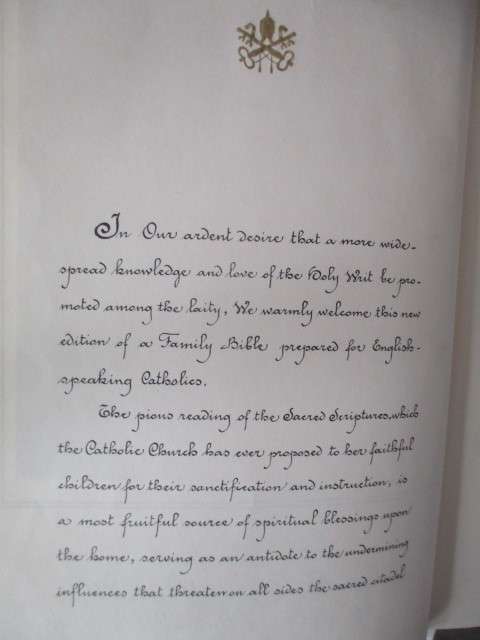 In Our ardent desire that a more wide-
spread knowledge and love of the Holy Writ be pro-
moted among the laity, We warmly welcome this new
edition of a Family Bible prepared for English-
speaking Catholics.
The pious reading of the Sacred Scriptures, which
the Catholic Church has ever proposed to her faithful
children for their sanctification and instruction, is
a most fruitful source of spiritual blessings upon
the home, serving as an antidote to the undermining
influences that threaten on all sides the sacred citadel